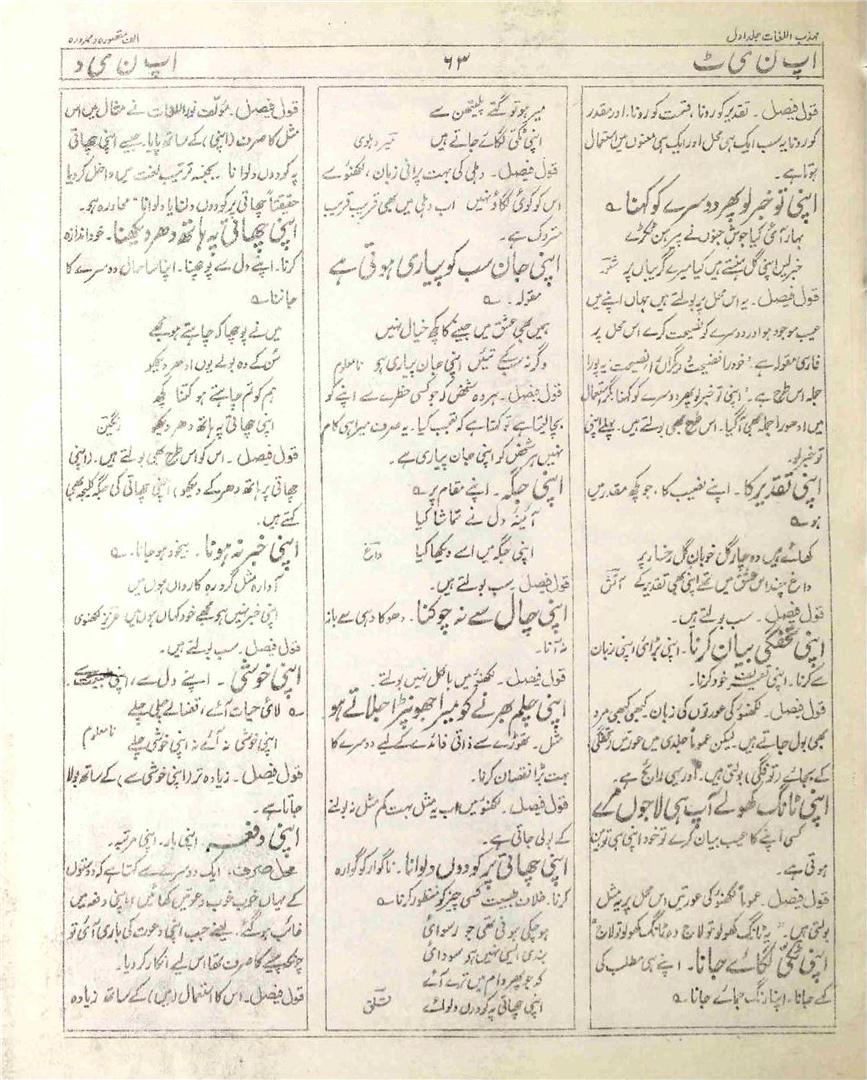 مہذب اللغات جلد اول
الف مقصورہ و ممدودہ
اپ ن ی ٹ
۶۳
اپ ن ی د
قول فیصل۔ تقدیر کو رونا، قسمت کو رونا۔ اور مقدر
کو رونا یہ سب ایک ہی محل اور ایک ہی معنوں میں استعمال
ہوتا ہے۔
اپنی تو خبر لو پھر دوسرے کو کہنا ؎
بہار آئی کیا جوش جنوں نے پیرہن ٹکڑے
خبر لیں اپنی گل ہنستے ہیں کیا میرے گریباں پر
قول فیصل۔ یہ اس محل پر بولتے ہیں جہاں اپنے میں
عیب موجود ہو اور دوسرے کو نصیحت کرے اس محل پر
فارسی مقولہ ہے "خود را فضیحت و دیگراں را نصیحت" یہ پورا
جملہ اس طرح ہے۔ "اپنی تو خبر لو پھر دوسرے کو کہنا" مگر استعمال
میں ادھورا جملہ بھی آگیا۔ اس طرح بھی بولتے ہیں۔ پہلے اپنی
تو خبر لو۔
اپنی تقدیر کا۔ اپنے نصیب کا، جو کچھ مقدر میں
ہو ؎
کھائے ہیں دو چار گل خوبان گل رخسار پر
داغ چند اس عشق میں تھے اپنی بھی تقدیر کے آتش
قول فیصل۔ سب بولتے ہیں۔
اپنی تخفگی بیان کرنا۔ اپنی بڑائی اپنی زبان
سے کرنا۔ اپنی تعریف خود کرنا۔
قول فیصل۔ لکھنؤ کی عورتوں کی زبان کبھی کبھی مرد
بھی بول جاتے ہیں۔ لیکن عموماً جلدی میں عورتیں
کے بجائے بولتی ہیں۔ اور یہی رائج ہے۔
اپنی ٹانگ کھولے آپ ہی لاجوں مرے
کسی اپنے کا عیب بیان کرے تو خود اپنی ہی توہین
ہوتی ہے۔
قول فیصل۔ عموماً لکھنؤ کی عورتیں اس محل پر یہ مثل
بولتی ہیں۔ "یہ ٹانگ کھولو تو لاج وہ ٹانگ کھولو تو لاج"
اپنی ٹکی لگائے جانا۔ اپنے ہی مطلب کی
کہے جانا۔ اپنا رنگ جمائے جانا۔ ؎
میر ہو تو گتے پلیتھن سے
اپنی ٹکی لگائے جاتے ہیں میر دہلوی
قول فیصل۔ دہلی کی بہت پرانی زبان، لکھنؤ سے
اس کو کوئی لگاؤ نہیں اب دہلی میں بھی قریب قریب
متروک ہے۔
اپنی جان سب کو پیاری ہوتی ہے
مقولہ۔ ؎
ہمیں بھی عشق میں جینے کا کچھ خیال نہیں
وگرنہ سب کے تئیں اپنی جان پیاری ہو نا معلوم
قول فیصل۔ ہر وہ شخص کہ جو کسی خطرے سے اپنے کو
بچا لیتا ہے تو کہتا ہے کہ تعجب کیا۔ یہ صرف میرا ہی کام
نہیں ہر شخص کو اپنی جان پیاری ہے۔
اپنی جگہ۔ اپنے مقام پر ؎
آئینۂ دل نے تماشا کیا
اپنی جگہ میں اسے دیکھا کیا داغ
قول فیصل۔ سب بولتے ہیں۔
اپنی چال سے نہ چوکنا۔ دھوکا دہی سے باز
نہ آنا۔
قول فیصل۔ لکھنؤ میں بالکل نہیں بولتے۔
اپنی چلم بھرنے کو میرا جھونپڑا جلاتے ہو
مثل۔ تھوڑے سے ذاتی فائدے کے لیے دوسرے کا
بہت بڑا نقصان کرنا۔
قول فیصل۔ لکھنؤ میں اب یہ مثل بہت کم مثل نہ بولنے
کے بولی جاتی ہے۔
اپنی چھاتی پر کودوں دلوانا۔ ناگوار کو گوارہ
کرنا۔ خلاف طبیعت کسی چیز کو منظور کرنا ؎
ہو چکی ہونی تھی جو رسوائی
بندی ایسی نہیں ہو سودائی
کہ جو پھر دام میں ترے آئے
اپنی چھاتی پہ کودوں دلوائے قلق
قول فیصل۔ مؤلف نور اللغات نے مثال میں اس
مثل کا صرف (اپنی) کے ساتھ پایا۔ جیسے اپنی چھاتی
پہ کودوں دلوانا۔ بجنسہ ترتیب لغت میں داخل کر دیا
حقیقتاً "چھاتی پر کودوں دلنا یا دلوانا" محاورہ ہو۔
اپنی چھاتی پہ ہاتھ دھر دیکھنا۔ خود اندازہ
کرنا۔ اپنے دل سے پوچھنا۔ اپنا سا حال دوسرے کا
جاننا ؎
میں نے پوچھا کہ چاہتے ہو مجھے
سن کے وہ بولے یوں ادھر دیکھو
ہم کو تم چاہتے ہو کتنا کچھ
اپنی چھاتی پہ ہاتھ دھر دیکھو رنگین
قول فیصل۔ اس کو اس طرح بھی بولتے ہیں۔ (اپنی
چھاتی پر ہاتھ دھر کے دیکھو) اپنی چھاتی کی جگہ کلیجہ بھی
کہتے ہیں۔
اپنی خبر نہ ہونا۔ بیخود ہو جانا۔ ؎
آوارہ مثل گرد رہ کارواں ہوں میں
اپنی خبر نہیں ہو مجھے خود کہاں ہوں میں عزیز لکھنوی
قول فیصل۔ سب بولتے ہیں۔
اپنی خوشی۔ اپنے دل سے،
؎ لائی حیات آئے، قضا لے چلی چلے
اپنی خوشی نہ آئے نہ اپنی خوشی چلے نا معلوم
قول فیصل۔ زیادہ تر (اپنی خوشی سے) کے ساتھ بولا
جاتا ہے۔
اپنی دفعہ۔ اپنی بار۔ اپنی مرتبہ۔
محل صرف۔ ایک دوسرے سے کہتا ہے کہ دوستوں
کے یہاں خوب خوب دعوتیں کھائیں، اپنی دفعہ میں
غائب ہو گئے۔ یعنی جب اپنی دعوت کی باری آئی تو
چونکہ پیسے کا صرف تھا اس لیے انکار کر دیا۔
قول فیصل۔ اس کا استعمال (میں) کے ساتھ زیادہ